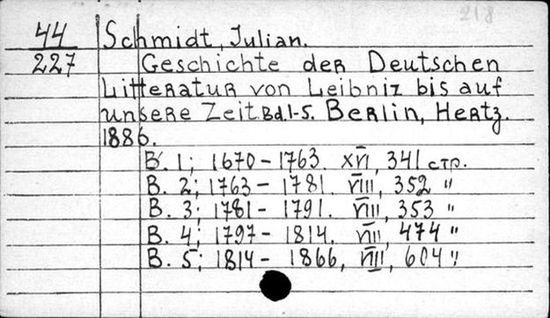 218
44
227
Schmidt, Julian.
Geschichte der Deutschen
Litteratur von Leibniz bis auf
unsere Zeit Bd. 1-5. Berlin, Hertz.
1886.
B. 1; 1670 - 1763. XVI, 341 стр.
B. 2; 1763 - 1781. VIII, 352 "
B. 3; 1781 - 1791. VIII, 353 "
B. 4; 1797 - 1814. VIII, 474 "
B. 5; 1814 - 1866, VIII, 604 "